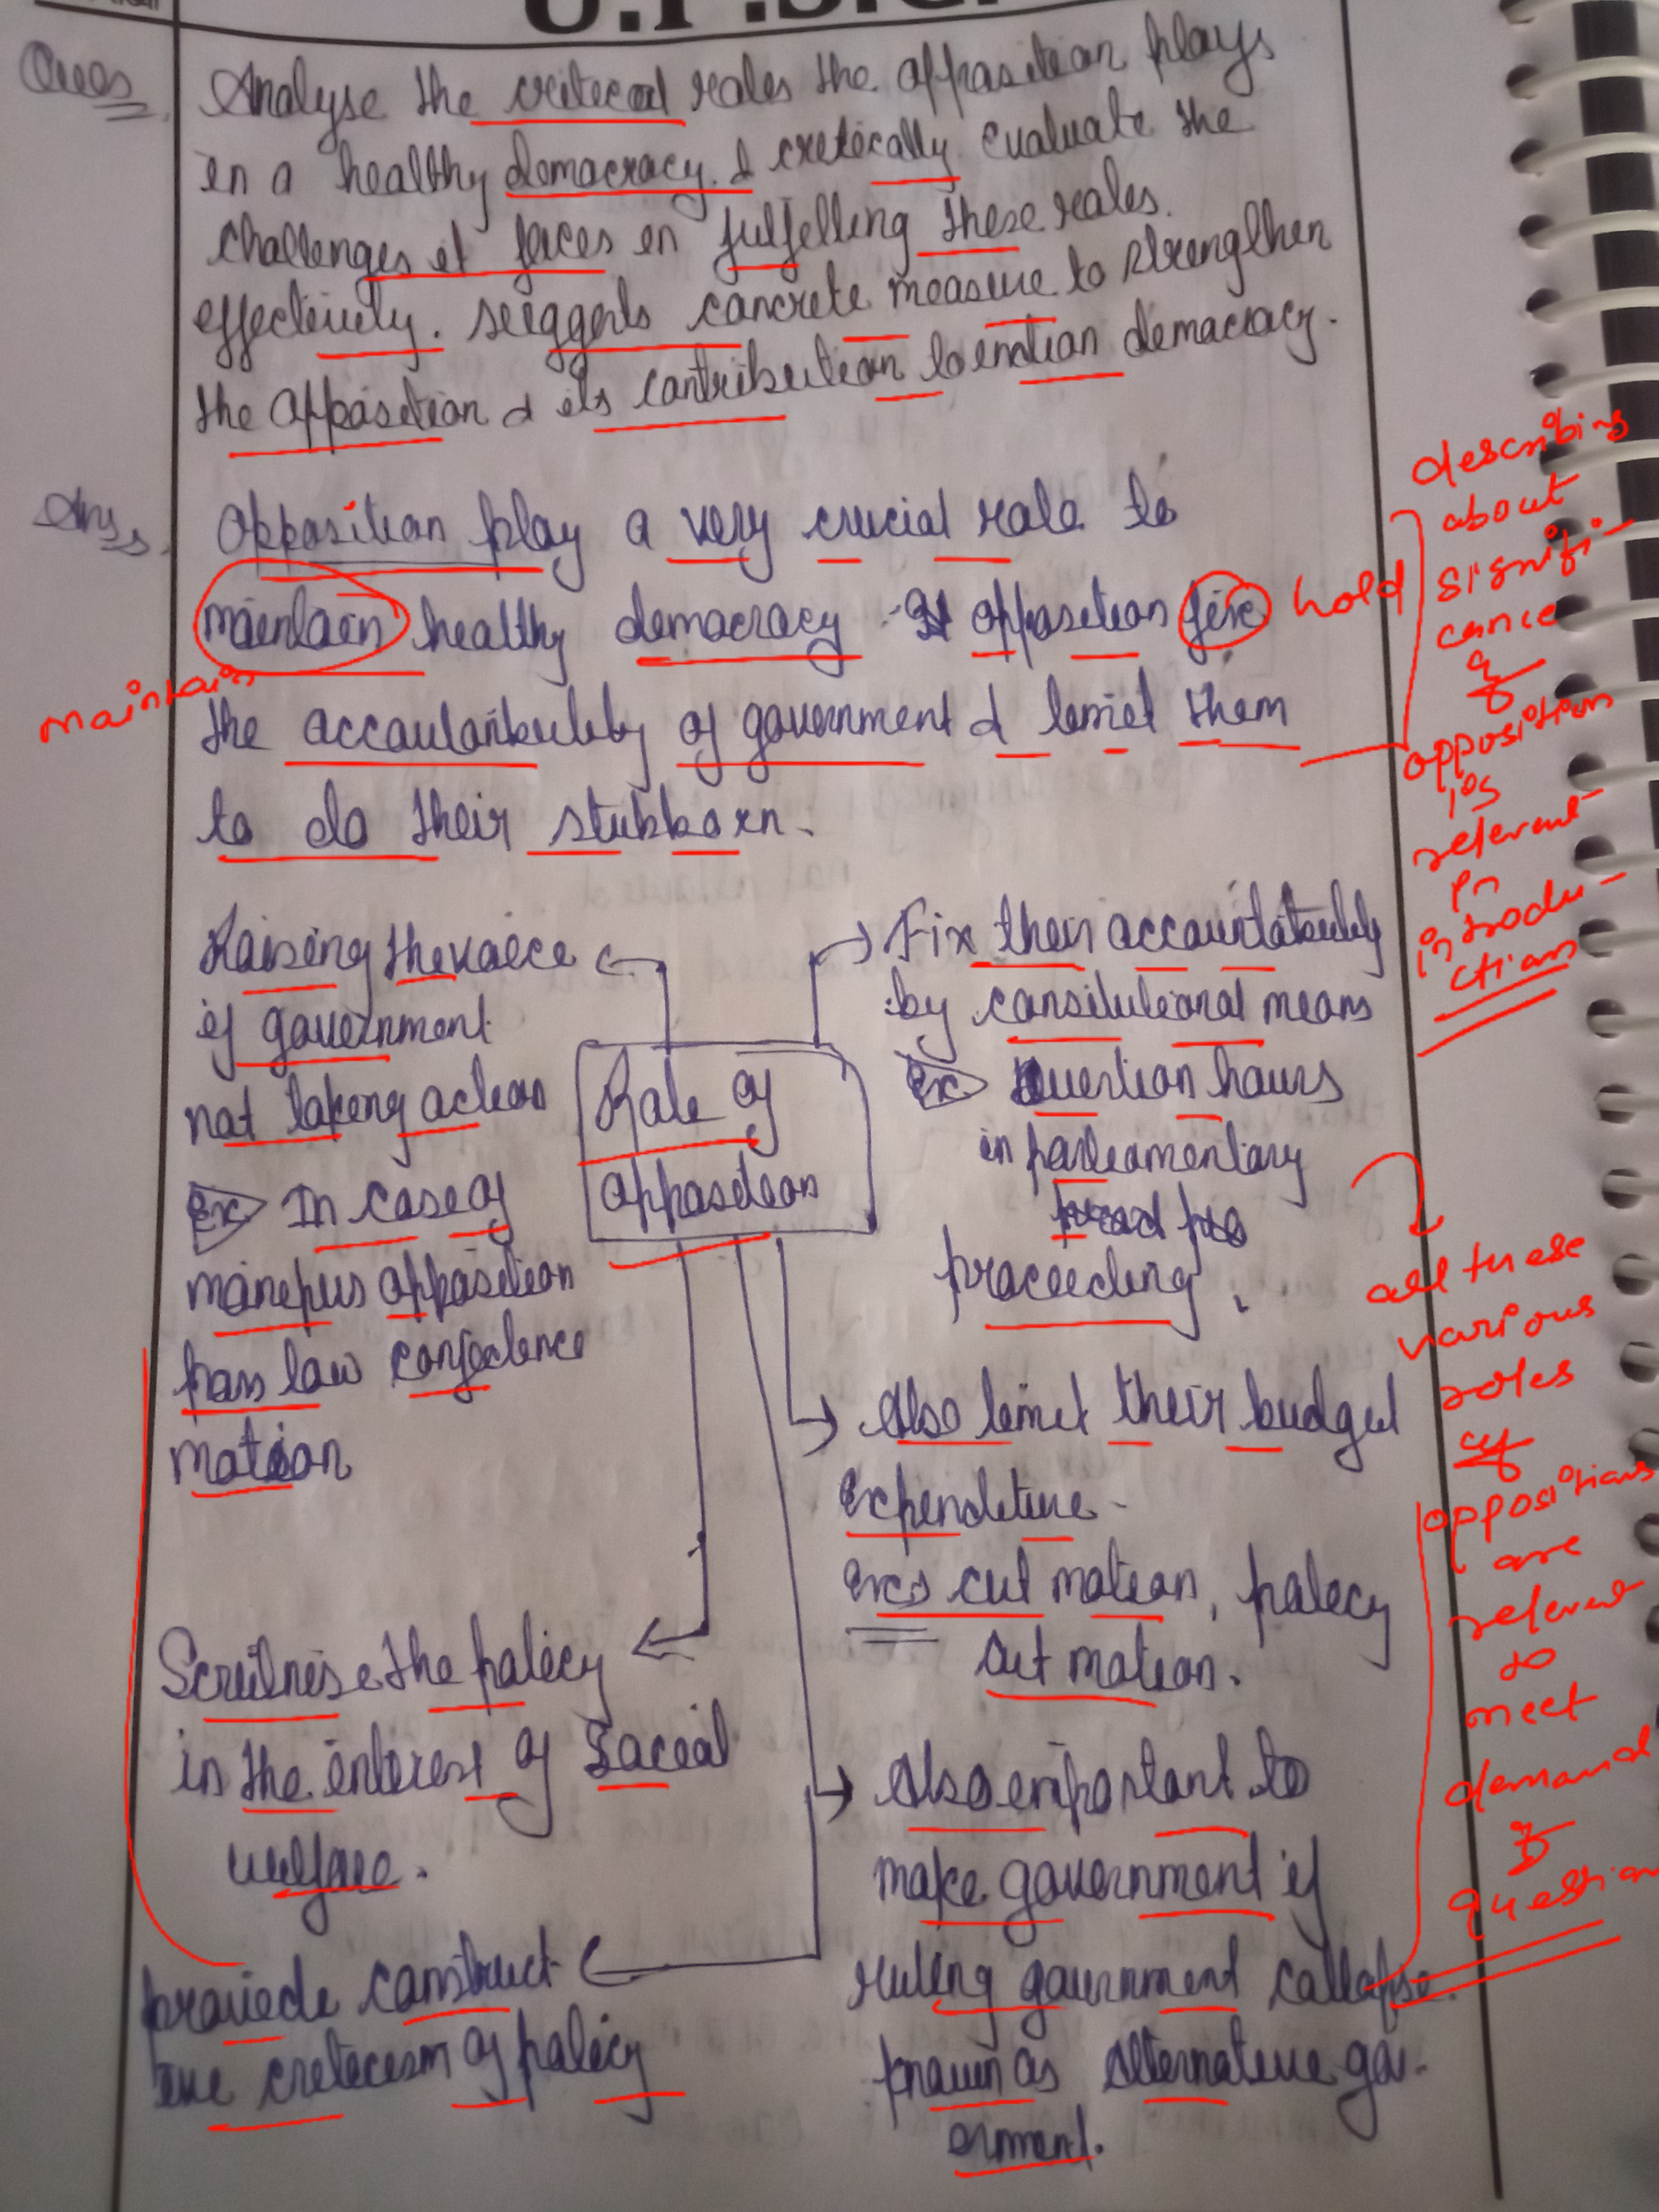 U.P.S.C.
Ques
Analyse the critical roles the opposition plays
in a healthy democracy. & critically evaluate the
challenges it faces in fulfilling these roles.
effectively. suggests concrete measure to strengthen
the opposition & its contribution to democracy.
Ans
Opposition play a very crucial role to
maintain healthy democracy opposition fix hold
maintain
the accountability of government & limit them
to do their stubborn.
describing
about
signifi-
cance
of
opposition
is
relevant
in
introdu-
ction
Raising the voice
if government
not taking action
Ex In case of
manipur opposition
pass law confidence
motion
Role of
opposition
Fix their accountability
by constitutional means
Ex Question hours
in parliamentary
proceeding.
Also limit their budget
Expenditure-
Ex cut motion, policy
cut motion.
Scrutinise the policy
in the interest of social
welfare.
Also important to
make government if
ruling government collapse.
known as alternative gov-
ernment.
provide construct
ive criticism of policy
all these
various
roles
of
oppositions
are
relevant
to
meet
demand
of
question